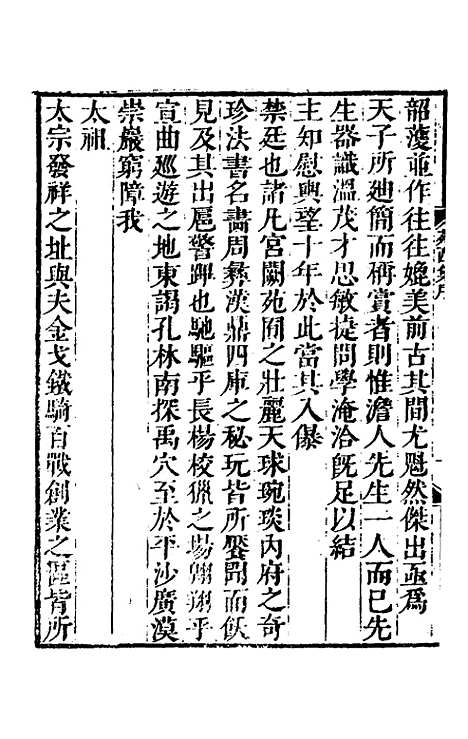 韶蒦並作往往媲美前古其間尤魁然傑出亟爲
天子所廸簡而稱賞者則惟澹人先生一人而已先
生器識溫茂才思敏捷問學淹洽旣足以結
主知慰輿望十年於此當其入儤
禁廷也諸凡宮闕苑囿之壯麗天球琬琰內府之奇
珍法書名畵周彝漢鼎四庫之秘玩皆所饜聞而飫
見及其出扈警蹕也馳驅乎長楊校獵之場翱翔乎
宣曲廵遊之地東謁孔林南探禹穴至於平沙廣漠
崇巖窮障我
太祖
太宗發祥之址與夫金戈鐵騎百戰創業之區皆所